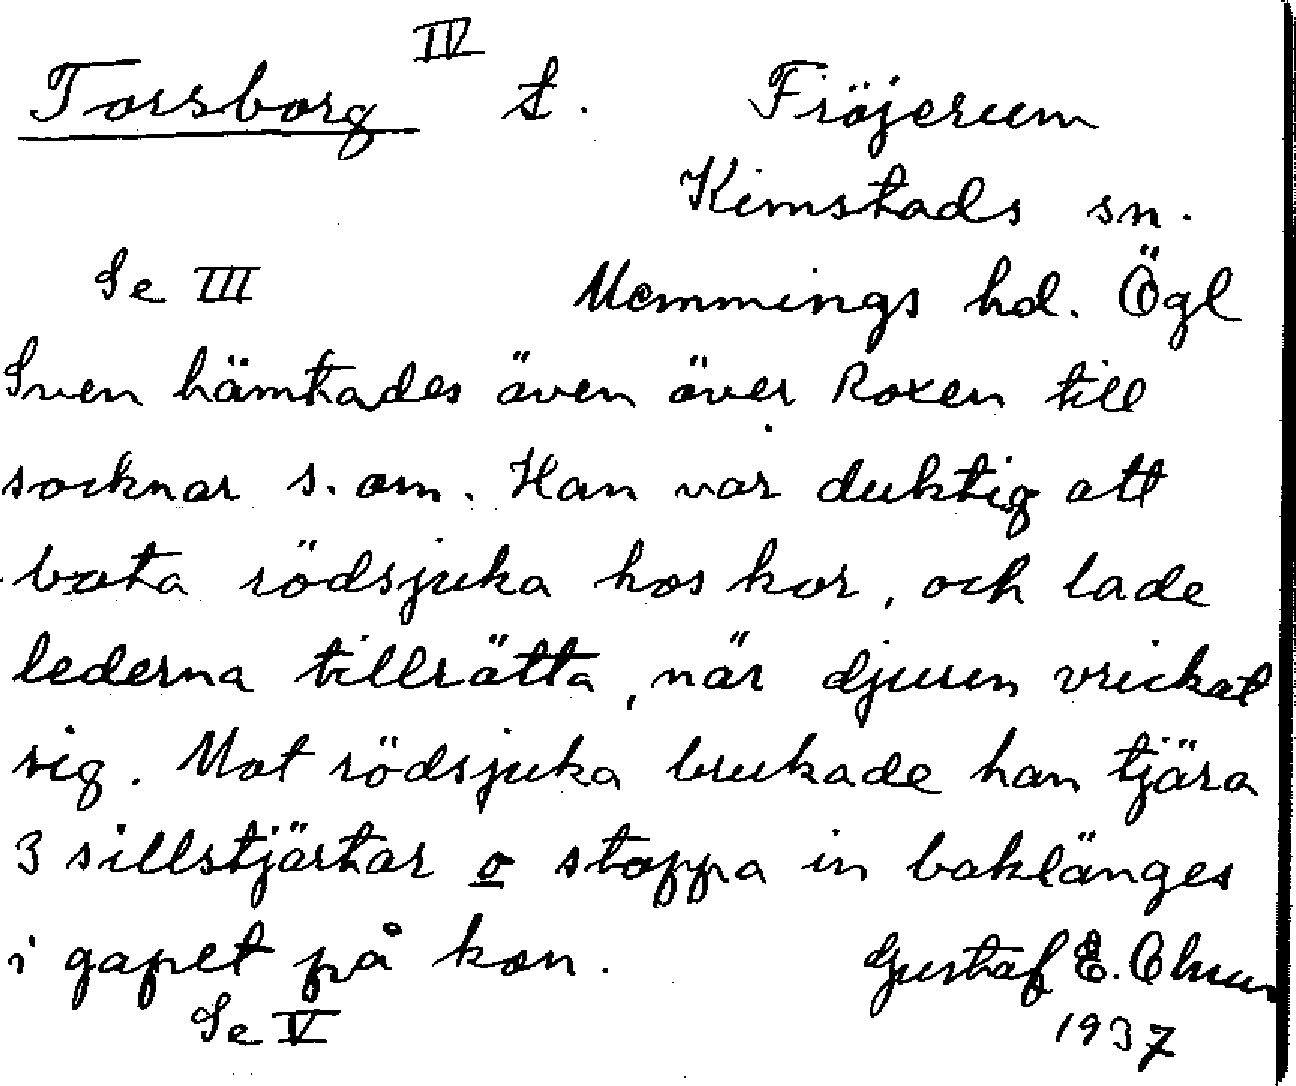 IV
Torsborg t. Fröjerum
Kimstads sn.
Se III Memmings hd. Ögl
Sven hämtades även över Roxen till
socknar s. om. Han var duktig att
bota rödsjuka hos kor, och lade
lederna tillrätta, när djuren vrickat
sig. Mot rödsjuka brukade han tjära
3 sillstjärtar o stoppa in baklänges
i gapet på kon. Gustaf E.
Se V 1937